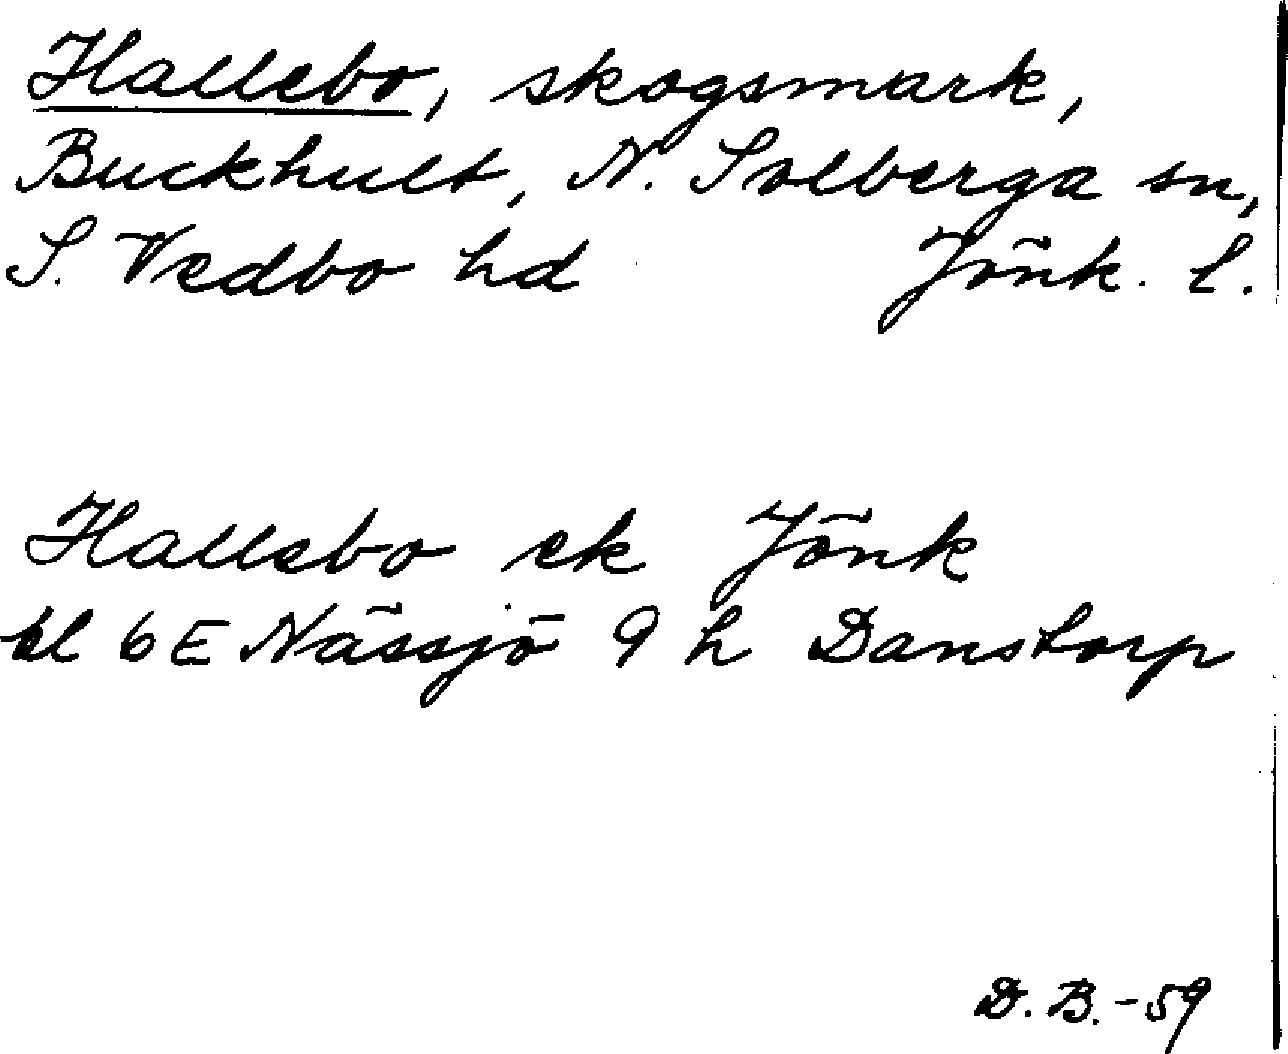 Hallebo, skogsmark,
Buckhult, N. Solberga sn,
S. Vedbo hd Jönk. l.
Hallebo ek Jönk
bl 6E Nässjö 9 h Danstorp
D. B. - 59